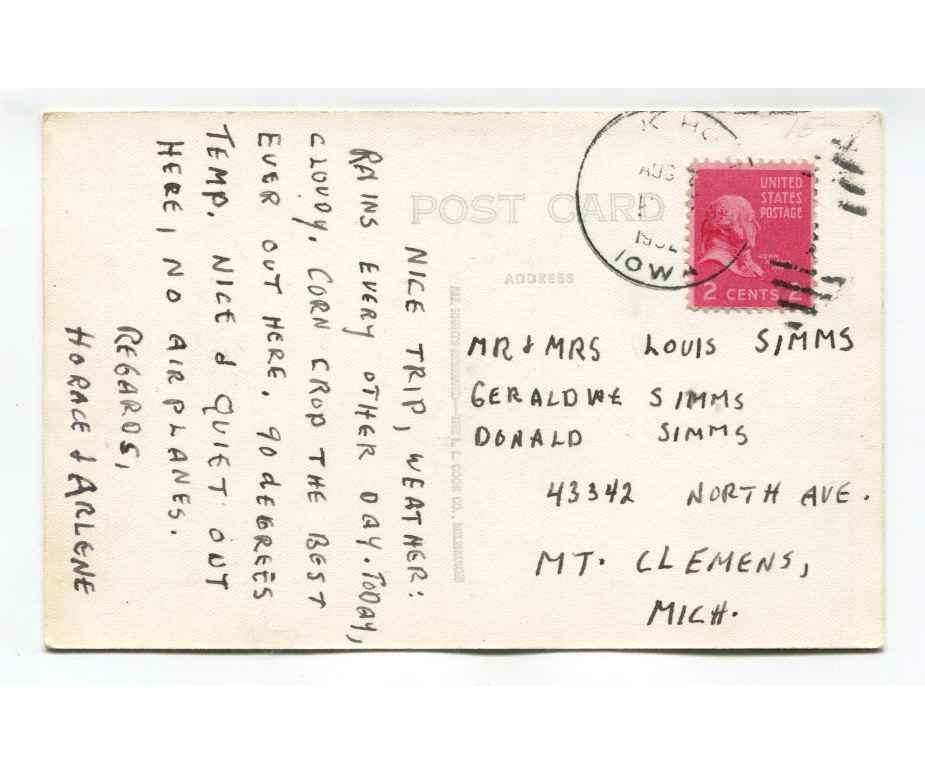 NICE TRIP, WEATHER:
RAINS EVERY OTHER DAY. TODAY,
CLOUDY. CORN CROP THE BEST
EVER OUT HERE. 90 DEGREES
TEMP. NICE & QUIET OUT
HERE, NO AIRPLANES.
REGARDS,
HORACE & ARLENE
POST CARD
ADDRESS
AUG
IOWA
UNITED
STATES
POSTAGE
2 CENTS 2
MR & MRS LOUIS SIMMS
GERALDINE SIMMS
DONALD SIMMS
43342 NORTH AVE.
MT. CLEMENS,
MICH.